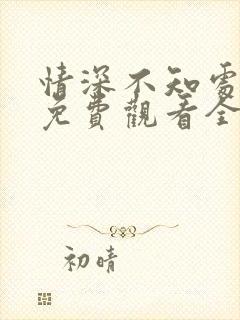 情深不知處
免費觀看全
初晴